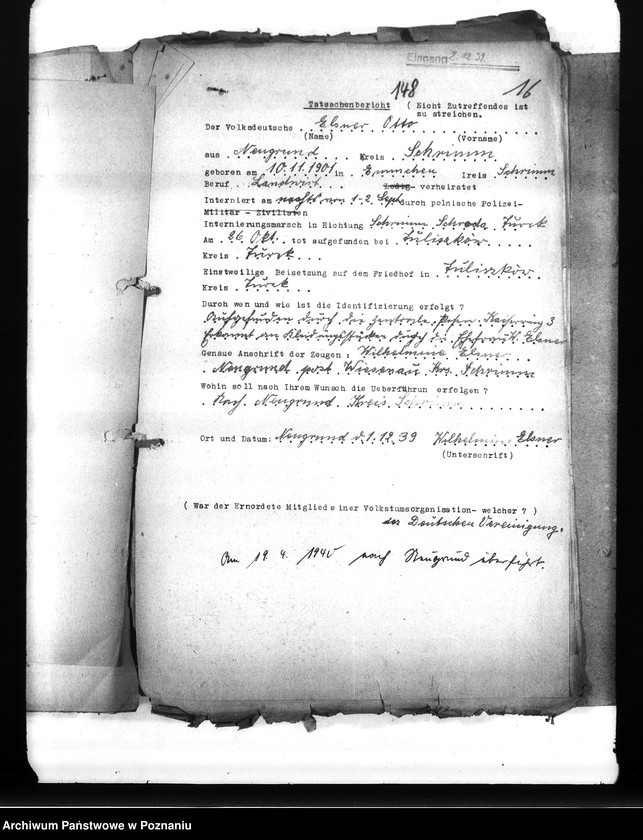 Eingang 2.12.39.
148
16
Tatsachenbericht ( Nicht Zutreffendes ist
zu streichen.
Der Volksdeutsche . Elsner Otto
(Name) (Vorname)
aus . Neugrund Kreis . Schrimm
geboren am 10.11.1901 in . Emmchen Kreis Schrimm
Beruf . Landwirt Ledig- verheiratet
Interniert am nachts von 1-2. Sept durch polnische Polizei-
Militär - Zivilisten
Internierungsmarsch in Richtung Schrimm Schroda, Turek
Am . 26. Okt. . tot aufgefunden bei . Tuliszków
Kreis . Turek
Einstweilige Beisetzung auf dem Friedhof in . Tuliszków
Kreis . Turek
Durch wen und wie ist die Identifizierung erfolgt ?
Aufgefunden durch die Zentrale, Posen, Kaiserring 3
Erkannt an Kleidungsstücken durch die Ehefrau Elsner
Genaue Anschrift der Zeugen : Wilhelmine Elsner
Neugrund post. Wiesenau Krs. Schrimm
Wohin soll nach Ihrem Wunsch die Ueberführun erfolgen ?
Nach Neugrund Kreis Schrimm
Ort und Datum: Neugrund d. 1.12.39 Wilhelmine Elsner
(Unterschrift)
( War der Ernordete Mitglied einer Volkstumsorganisation- welcher ? )
der Deutschen Vereinigung.
Am 19. 4. 1940 nach Neugrund überführt.
Archiwum Państwowe w Poznaniu